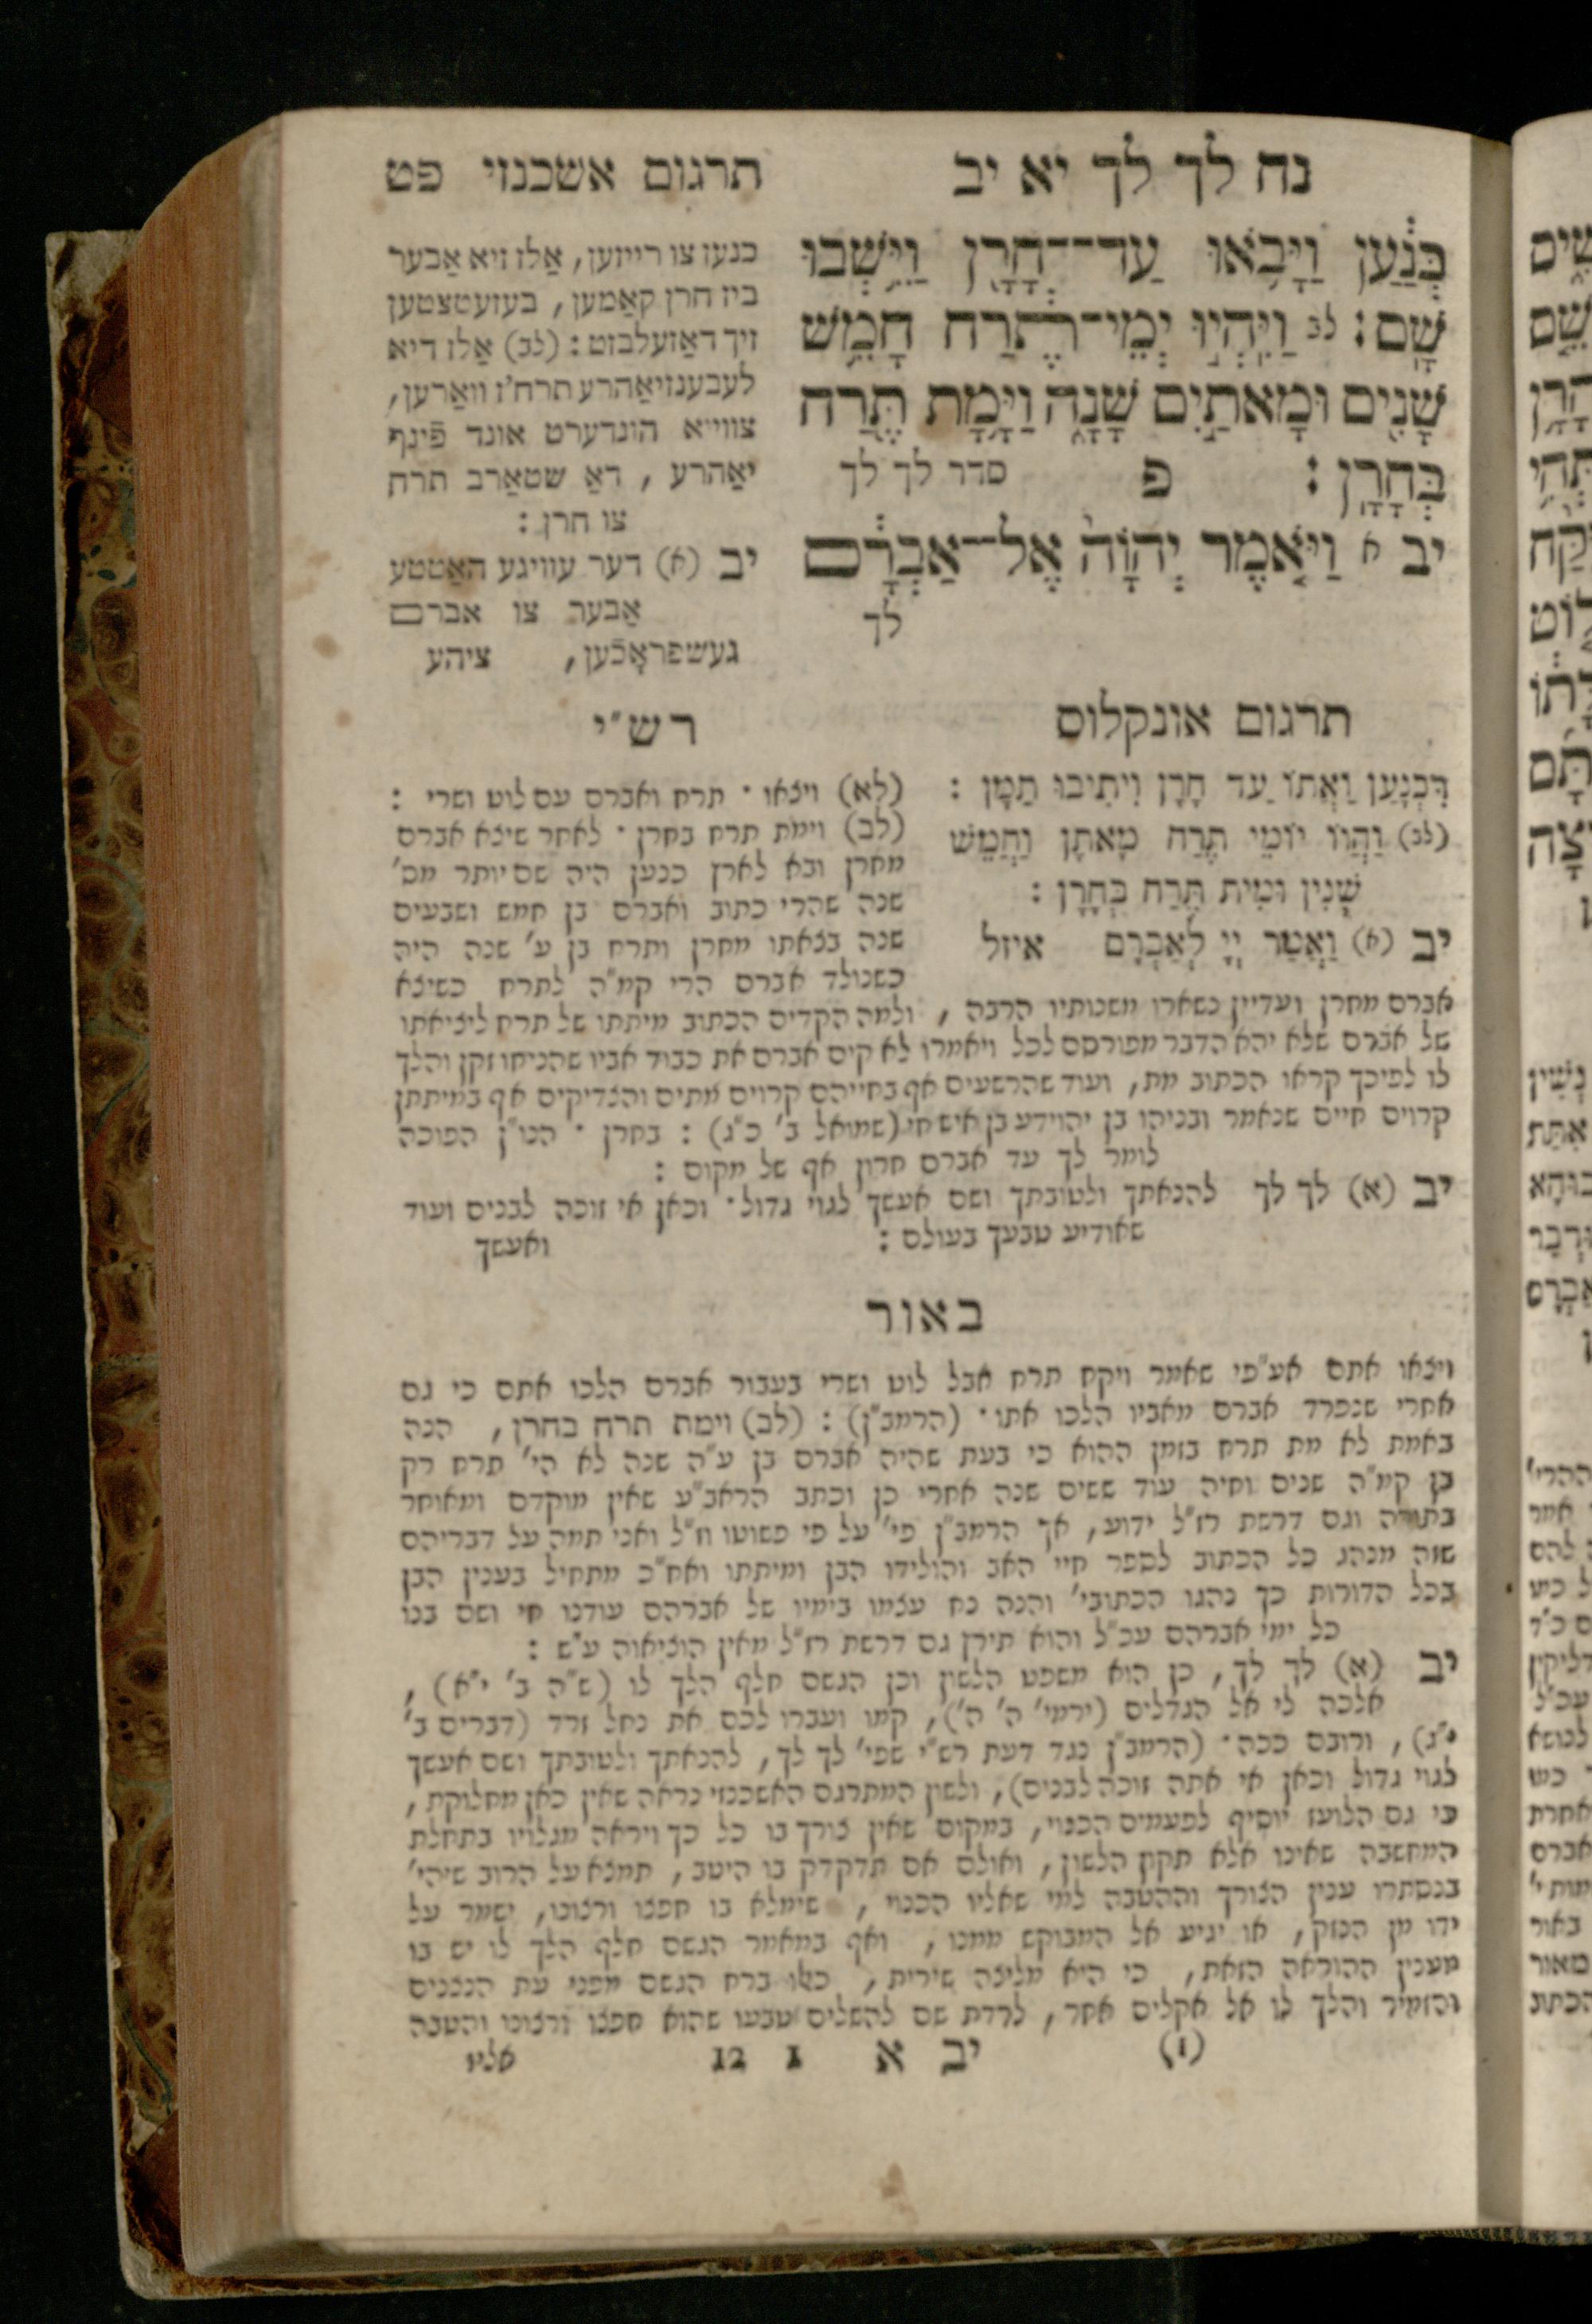 נח לך לך יא יב
תרגום אשכנזי פט
כְּנַ֔עַן וַיָּבֹ֥אוּ עַד־חָרָ֖ן וַיֵּ֥שְׁבוּ
שָֽׁם׃ לב וַיִּֽהְי֣וּ יְמֵי־תֶ֔רַח חָמֵ֥שׁ
שָׁנִ֖ים וּמָאתַ֣יִם שָׁנָ֑ה וַיָּ֥מָת תֶּ֖רַח
בְּחָרָֽן׃ פ סדר לך לך
יב א וַיֹּ֤אמֶר יְהוָֹה֙ אֶל־אַבְרָ֔ם
לך
כנען צו רייזען, אַלז זיא אַבער
ביז חרן קאַמען, בעזעטצטען
זיך דאַזעלבזט: (לב) אַלז דיא
לעבענזיאַהרע תרח'ז וואַרען,
צווייא הונדערט אונד פֿינף
יאַהרע, דאַ שטאַרב תרח
צו חרן:
יב (א) דער עוויגע האַטטע
אַבער צו אברם
געשפראָכֿען, ציהע
תרגום אונקלוס
דִּכְנָעַן וַאֲתוֹ עַד חָרָן וִיתִיבוּ תַמָּן:
(לב) וַהֲווֹ יוֹמֵי תֶרַח מָאתָן וַחֲמֵשׁ
שְׁנִין וּמִית תֶּרַח בְּחָרָן:
יב (א) וַאֲמַר יְיָ לְאַבְרָם איזל
רש"י
(לא) ויצאו · תרח ואברם עם לוט ושרי:
(לב) וימת תרח בחרן · לאחר שיצא אברם
מחרן ובא לארץ כנען היה שם יותר מס'
שנה שהרי כתוב ואברם בן חמש ושבעים
שנה בצאתו מחרן ותרח בן ע' שנה היה
כשנולד אברם הרי קמ"ה לתרח כשיצא
אברם מחרן ועדיין נשארו משנותיו הרבה, ולמה הקדים הכתוב מיתתו של תרח ליציאתו
של אברם שלא יהא הדבר מפורסם לכל ויאמרו לא קים אברם את כבוד אביו שהניחו זקן והלך
לו לפיכך קראו הכתוב מת, ועוד שהרשעים אף בחייהם קרוים מתים והצדיקים אף במיתתן
קרוים חיים שנאמר ובניהו בן יהוידע בן איש חי (שמואל ב' כ"ג): בחרן · הנו"ן הפוכה
לומר לך עד אברם חרון אף של מקום:
יב (א) לך לך להנאתך ולטובתך ושם אעשך לגוי גדול· וכאן אי זוכה לבנים ועוד
שאודיע טבעך בעולם: ואעשך
באור
ויצאו אתם אע"פי שאמר ויקח תרח אבל לוט ושרי בעבור אברם הלכו אתם כי גם
אחרי שנפרד אברם מאביו הלכו אתו· (הרמב"ן): (לב) וימת תרח בחרן, הנה
באמת לא מת תרח בזמן ההוא כי בעת שהיה אברם בן ע"ה שנה לא הי' תרח רק
בן קמ"ה שנים וחיה עוד ששים שנה אחרי כן וכתב הראב"ע שאין מוקדם ומאוחר
בתורה וגם דרשת רז"ל ידוע, אך הרמב"ן פי' על פי פשוטו וז"ל ואני תמה על דבריהם
שזה מנהג כל הכתוב לספר חיי האב והולידו הבן ומיתתו ואח"כ מתחיל בענין הבן
בכל הדורות כך נהגו הכתובי' והנה נח עצמו בימיו של אברהם עודנו חי ושם בנו
כל ימי אברהם עכ"ל והוא תירץ גם דרשת רז"ל מאין הוציאוה ע"ש:
יב (א) לך לך, כן הוא משפט הלשון וכן הגשם חלף הלך לו (ש"ה ב' י"א),
אלכה לי אל הגדלים (ירמי' ה' ה'), קמו ועברו לכם את נחל זרד (דברים ב'
י"ג), ורובם ככה· (הרמב"ן נגד דעת רש"י שפי' לך לך, להנאתך ולטובתך ושם אעשך
לגוי גדול וכאן אי אתה זוכה לבנים), ולשון המתרגם האשכנזי נראה שאין כאן מחלוקת,
כי גם הלועז יוסיף לפעמים הכנוי, במקום שאין צורך בו כל כך ויראה מגלויו בתחלת
המחשבה שאינו אלא תקון הלשון, ואולם אם תדקדק בו היטב, תמצא על הרוב שיהי'
בנסתרו ענין הצורך וההטבה למי שאליו הכנוי, שימלא בו חפצו ורצונו, ישמר על
ידו מן הנזק, או יגיע אל המבוקש ממנו, ואף במאמר הגשם חלף הלך לו יש בו
מענין ההוראה הזאת, כי היא מליצה שירית, כאלו ברח הגשם מפני עת הנצנים
והזמיר והלך לו אל אקלים אחר, לרדת שם להשלים טבעו שהוא חפצו ורצונו והטבה
(ו) יב א 1 12 אליו